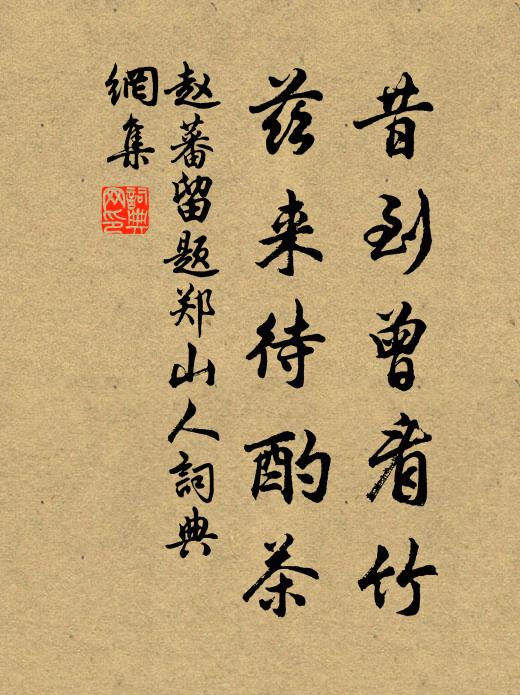 昔到曾看竹
兹来待酌茶
赵蕃留题郑山人詞典
網集
詞典
网印